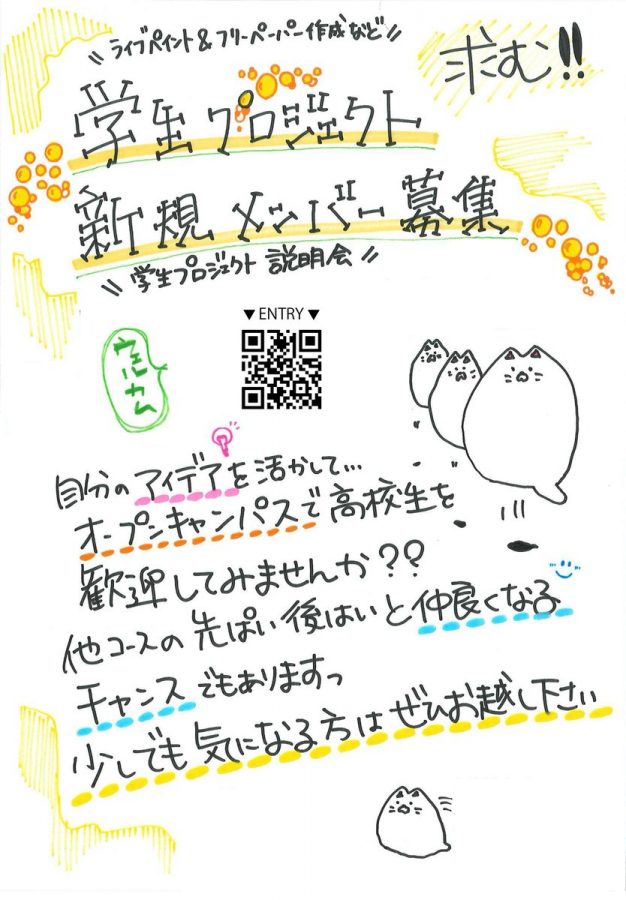 \\ ライブペイント&フリーペーパー作成など //
求む!!
学生プロジェクト
新規メンバー募集
\\ 学生プロジェクト 説明会 //
▼ ENTRY ▼
ウェルカム
自分のアイデアを活かして…
オープンキャンパスで高校生を
歓迎してみませんか??
他コースの先ぱい後はいと仲良くなる
チャンスでもありますっ
少しでも気になる方はぜひお越し下さい